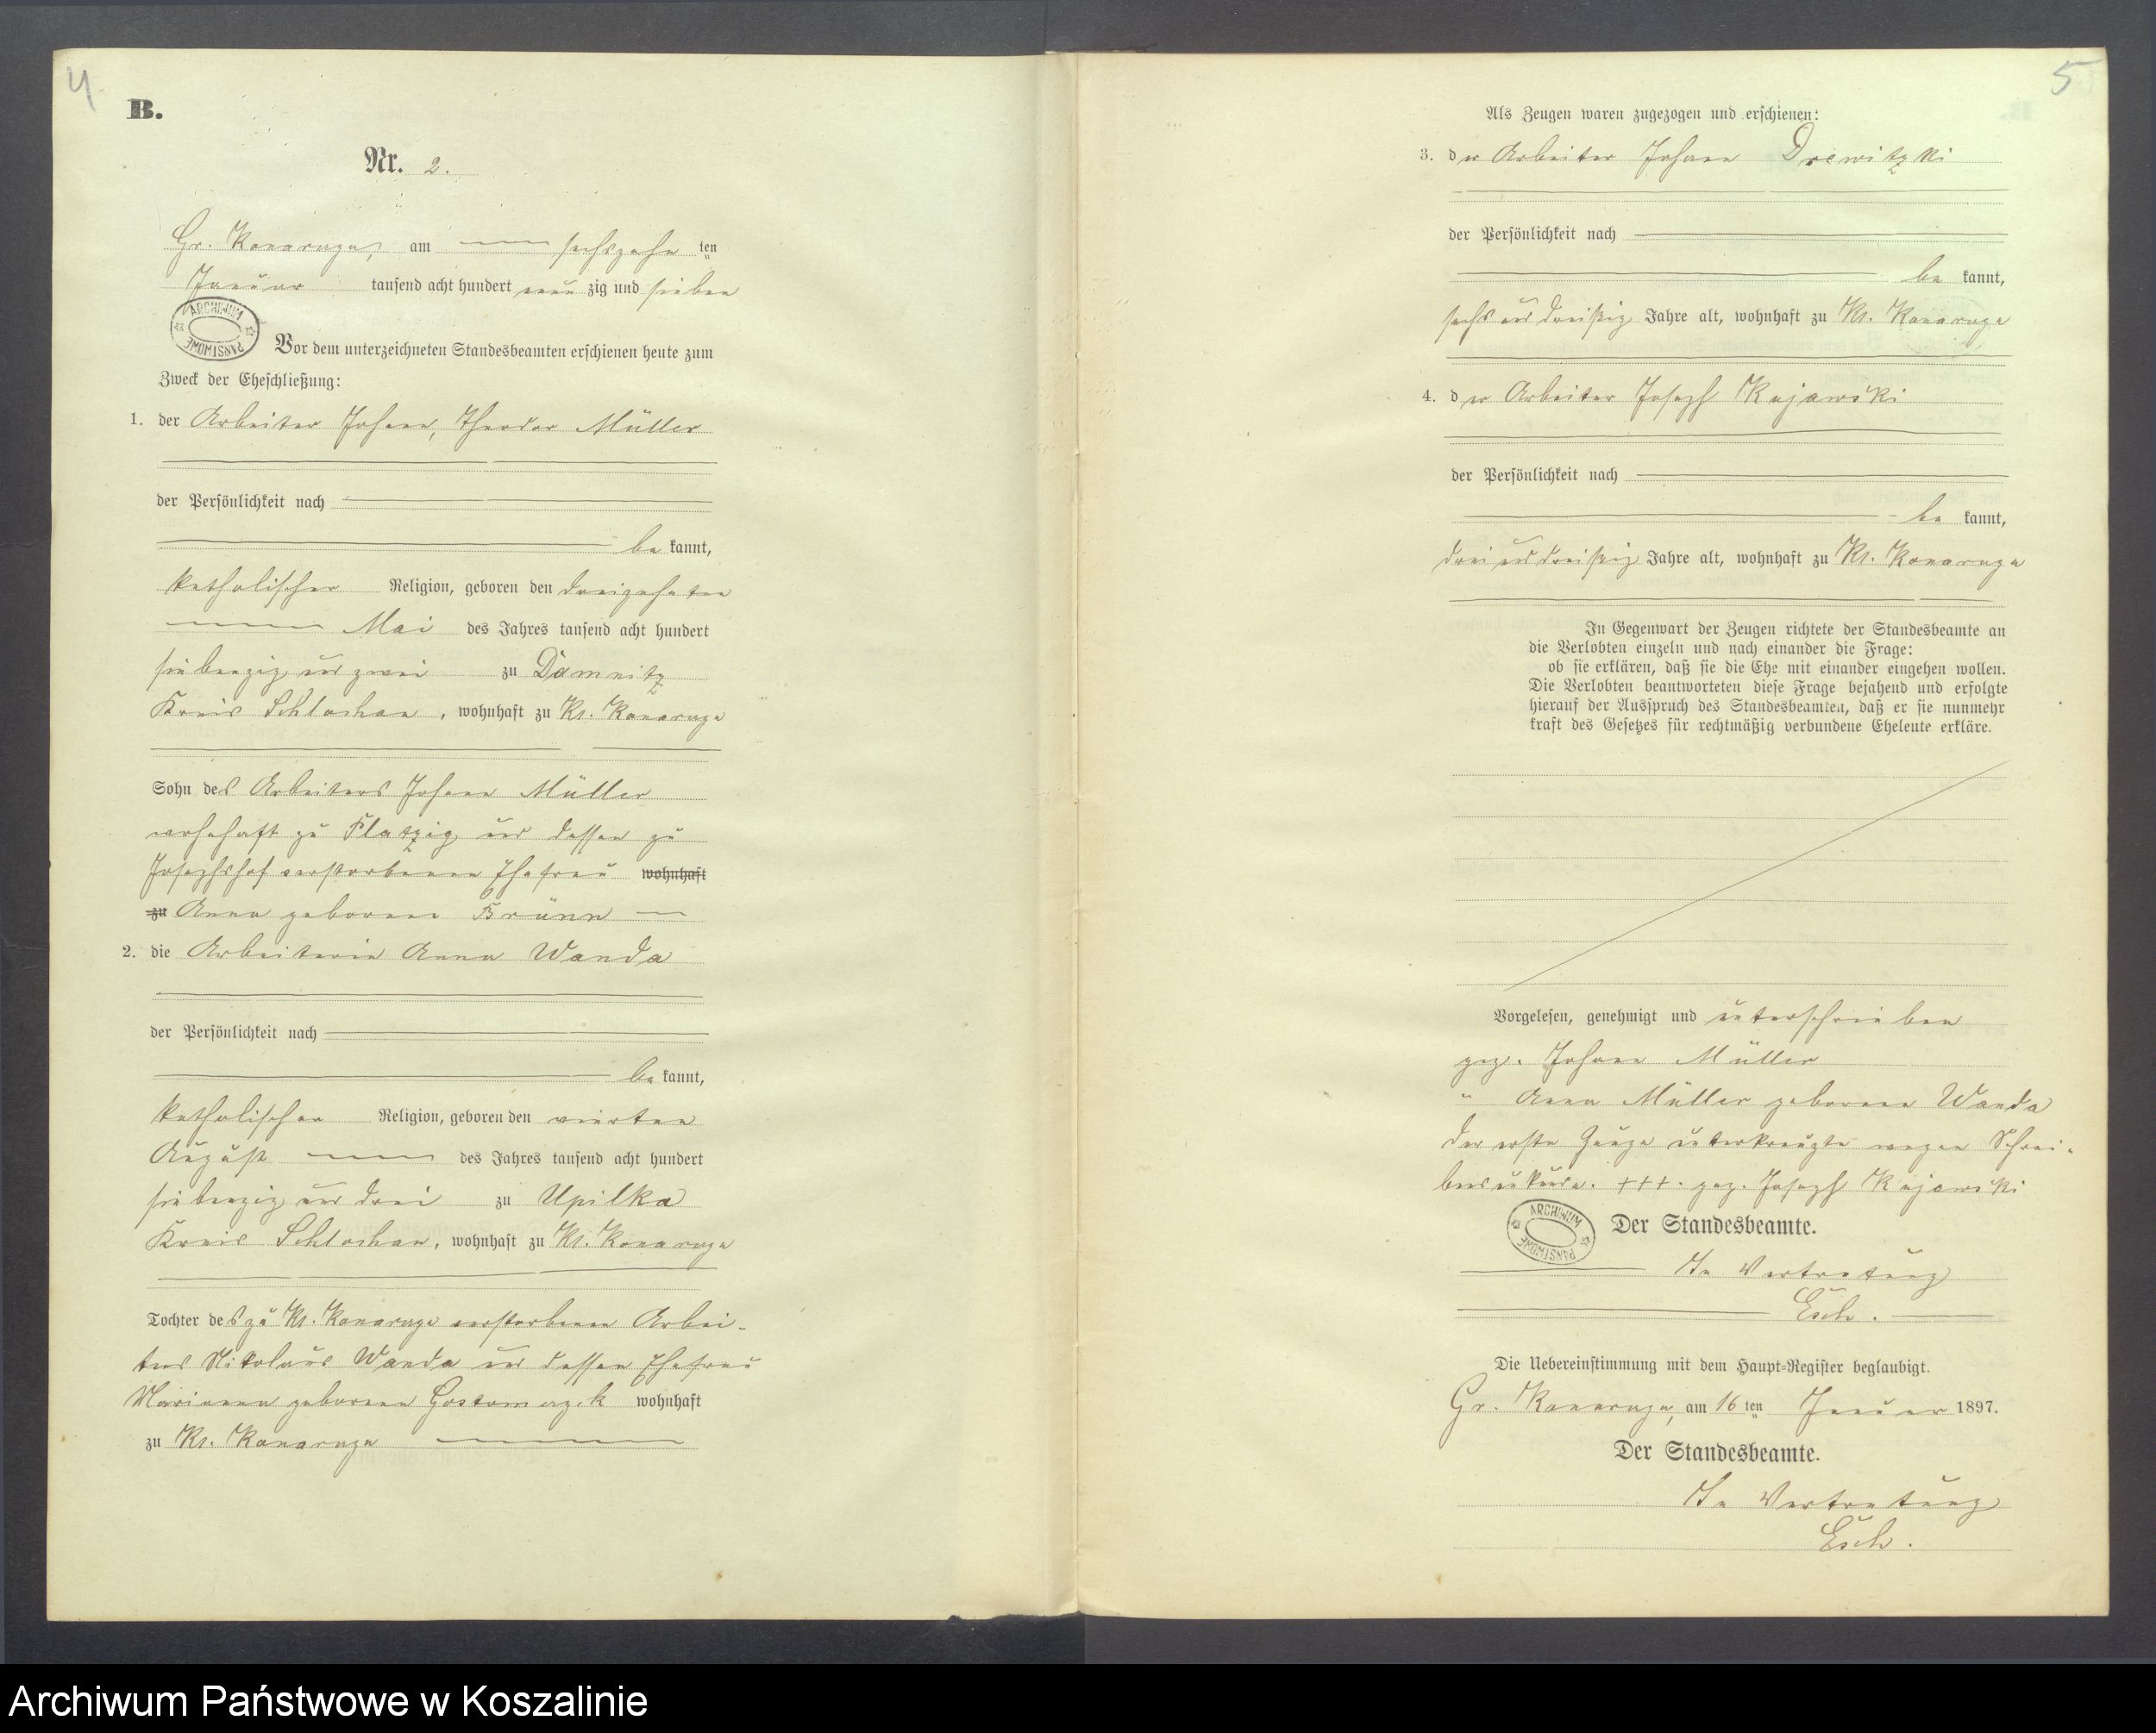 4
B.
Nr. 2.
Gr. Konarzyn, am sechszehn ten
Januar tausend acht hundert neun zig und sieben
ARCHIWUM PAŃSTWOWE
Vor dem unterzeichneten Standesbeamten erschienen heute zum
Zweck der Eheschließung:
1. der Arbeiter Johann, Theodor Müller
der Persönlichkeit nach
be kannt,
katholischer Religion, geboren den dreizehnten
Mai des Jahres tausend acht hundert
siebenzig und zwei zu Damnitz
Kreis Schlochau, wohnhaft zu Kl. Konarzyn
Sohn des Arbeiters Johann Müller
wohnhaft zu Flatzig und dessen zu
Josephshof verstorbenen Ehefrau wohnhaft
zu Anna geborene Brünn
2. die Arbeiterin Anna Wanda
der Persönlichkeit nach
be kannt,
katholischer Religion, geboren den vierten
August des Jahres tausend acht hundert
siebenzig und drei zu Upilka
Kreis Schlochau, wohnhaft zu Kl. Konarzyn
Tochter des zu Kl. Konarzyn verstorbenen Arbei-
ters Nikolaus Wanda und dessen Ehefrau
Marianna geborene wohnhaft
zu Kl. Konarzyn
5
Als Zeugen waren zugezogen und erschienen:
3. der Arbeiter Johann Drewitzki
der Persönlichkeit nach
be kannt,
sechs und dreißig Jahre alt, wohnhaft zu Kl. Konarzyn
4. der Arbeiter Joseph Kujawski
der Persönlichkeit nach
be kannt,
drei und dreißig Jahre alt, wohnhaft zu Kl. Konarzyn
In Gegenwart der Zeugen richtete der Standesbeamte an
die Verlobten einzeln und nach einander die Frage:
ob sie erklären, daß sie die Ehe mit einander eingehen wollen.
Die Verlobten beantworteten diese Frage bejahend und erfolgte
hierauf der Ausspruch des Standesbeamten, daß er sie nunmehr
kraft des Gesetzes für rechtmäßig verbundene Eheleute erkläre.
Vorgelesen, genehmigt und unterschrieben
gez. Johann Müller
" Anna Müller geborene Wanda
Der erste Zeuge unterkreuzte wegen Schrei-
bensunkunde. +++. gez. Joseph Kujawski
ARCHIWUM PAŃSTWOWE
Der Standesbeamte.
In Vertretung
Esch.
Die Uebereinstimmung mit dem Haupt-Register beglaubigt.
Gr. Konarzyn, am 16 ten Januar 1897.
Der Standesbeamte.
In Vertretung
Esch.
Archiwum Państwowe w Koszalinie